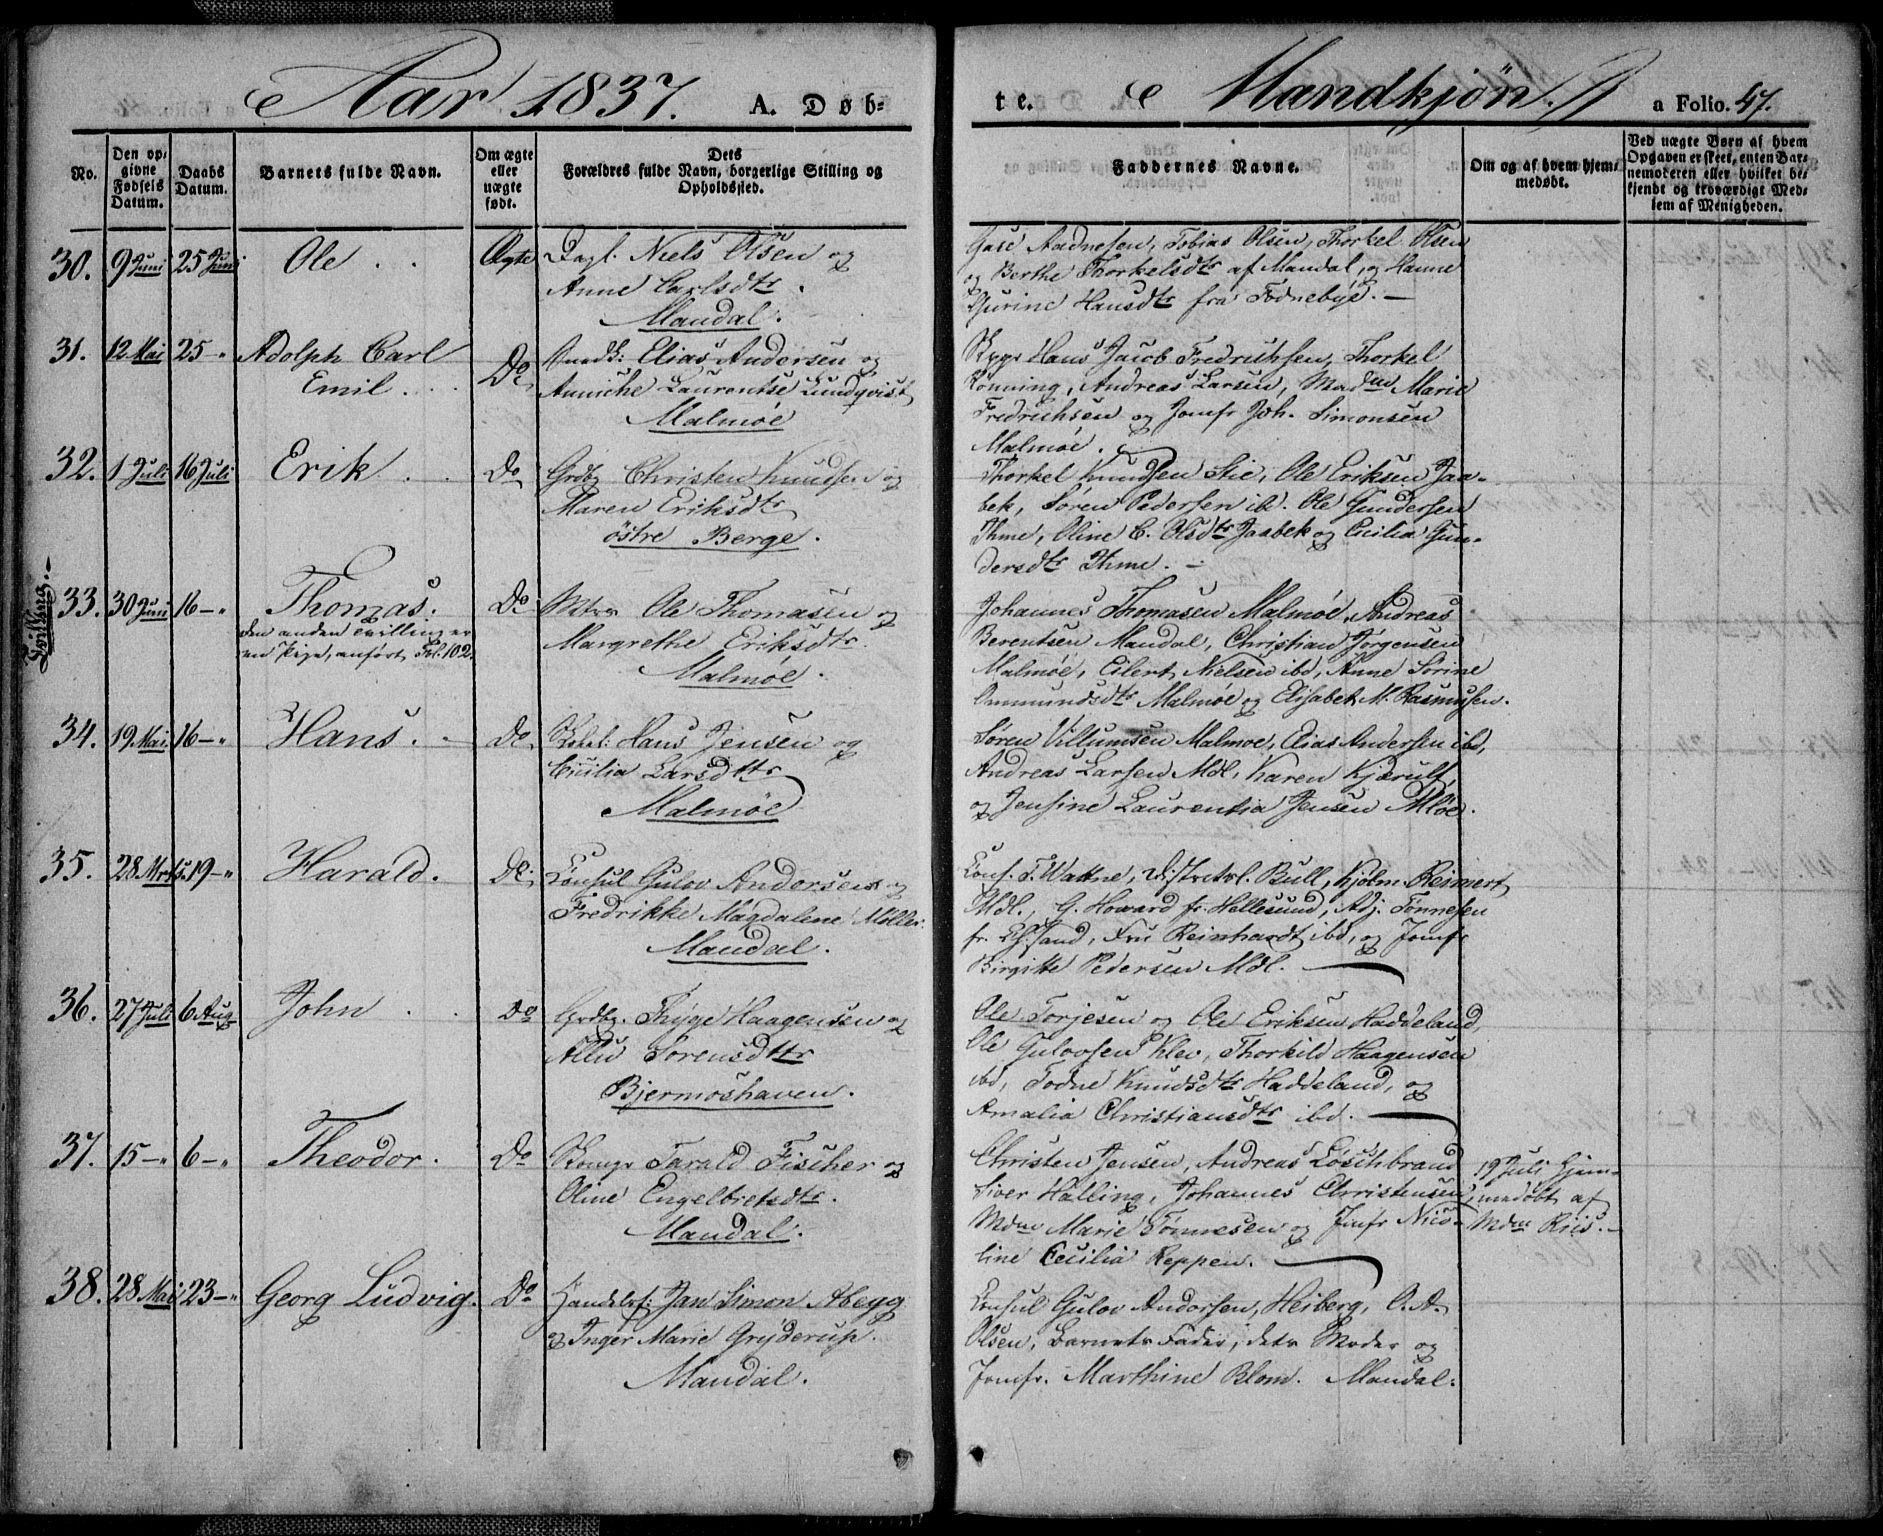 Aar 1837. A. Døb-
te. Mandkjøn. a Folio. 47.
No.
Den op-
givne
Fødsels
Datum.
Daabs
Datum.
Barnets fulde Navn.
Om ægte
eller
uægte
født.
Dets
Forældres fulde Navn, borgerlige Stilling og
Opholdssted.
Faddernes Navne.
Om og af hvem hjem-
medøbt.
Ved uægte Børn af hvem
Opgaven er skeet, enten Bar-
nemoderen eller hvilket be-
kjendt og troværdigt Med-
lem af Menigheden.
30. 9 Juni 25 Juni Ole Ægte
Dagl. Niels Olsen og
Anne Carlsdtr.
Mandal.
Aadnesen, Tobias Olsen, Thorkel Olsen
og Berthe Thorkelsdtr af Mandal, og Hanne
Gurine Hansdtr fra Todnebye.
31. 12 Mai 25 - Adolph Carl
Emil Do
Snedk: Elias Andersen og
Anniche Laurentse Lundqvist
Malmøe
Hans Jacob Fredrichsen, Thorkel
Rønning, Andreas Larsen, Madm Marie
Fredrichsen og Jomfr Joh. Simonsen
Malmøe.
32. 1 Juli 16 Juli Erik Do
Grdbr Christen Knudsen og
Maren Eriksdtr
østre Berge.
Thorkel Knudsen Stie, Ole Eriksen Jaa-
bek, Søren Pedersen ibd. Ole Gundersen
Ihme, Oline C. Olsdtr Jaabek og Cicilia Gun-
dersdtr Ihme.
Tvilling
33. 30 Juni 16 - Thomas. Do
den anden Tvilling er
en Pige, anført Fol. 102.
Mtrs Ole Thomasen og
Margrethe Eriksdtr.
Malmøe.
Johannes Thomasen Malmøe, Andreas
Berentsen Mandal, Christian Jørgensen
Malmøe, Eilert Nielsen ibd, Anne Sørine
Ommundsdtr Malmøe og Elisabet M. Rasmusen.
34. 19 Mai 16 - Hans. Do
Hans Jensen og
Cicilia Larsdttr
Malmøe
Søren Villumsen Malmoe, Elias Andersen ibd,
Andreas Larsen Mdl, Karen Kjærulf,
og Jensine Laurentia Jensen Mløe.
35. 28 Mrts 19 - Harald. Do
Consul Gulov Andersen og
Fredrikke Magdalene Møller
Mandal.
Cons. T. Wattne, Distrctsl. Bull, Kjøbm. Reimert
Mdl., G. Howard fr. Hellesund, Adj. Tønnesen
fr. Chsand, Fru Reinhardt ibd, og Jomfr
Birgitte Pedersen Mdl.
36. 27 Juli 6 Aug John Do
Grdbr. Thyge Haagensen og
Allis Sørensdttr
Bjermoshaven.
Ole Torjesen og Ole Eriksen Haddeland,
Ole Gulovsen Klev, Thorkild Haagensen
ibd, Todne Knudsdtr Haddeland, og
Amalia Christiansdtr ibd.
37. 15 - 6 - Theodor. Do
Tarald Fischer og
Oline Engelbretsdtr.
Mandal.
Christen Jensen, Andreas Løschbrand
Siver Halling, Johannes Christensen,
Mdm Marie Tønnesen og Jomfr Nico-
line Cecilia Reppen.
19 Juli hjem-
medøbt af
Mdm Riis.
38. 28 Mai 23 - Georg Ludvig. Do
Handelsf: Jan Simon Abegg
og Inger Marie Grÿderup.
Mandal.
Consul Gulov Andersen, Heiberg, O. A.
Olsen, Barnets Fader, dets Moder og
Jomfr. Marthine Blom. Mandal.